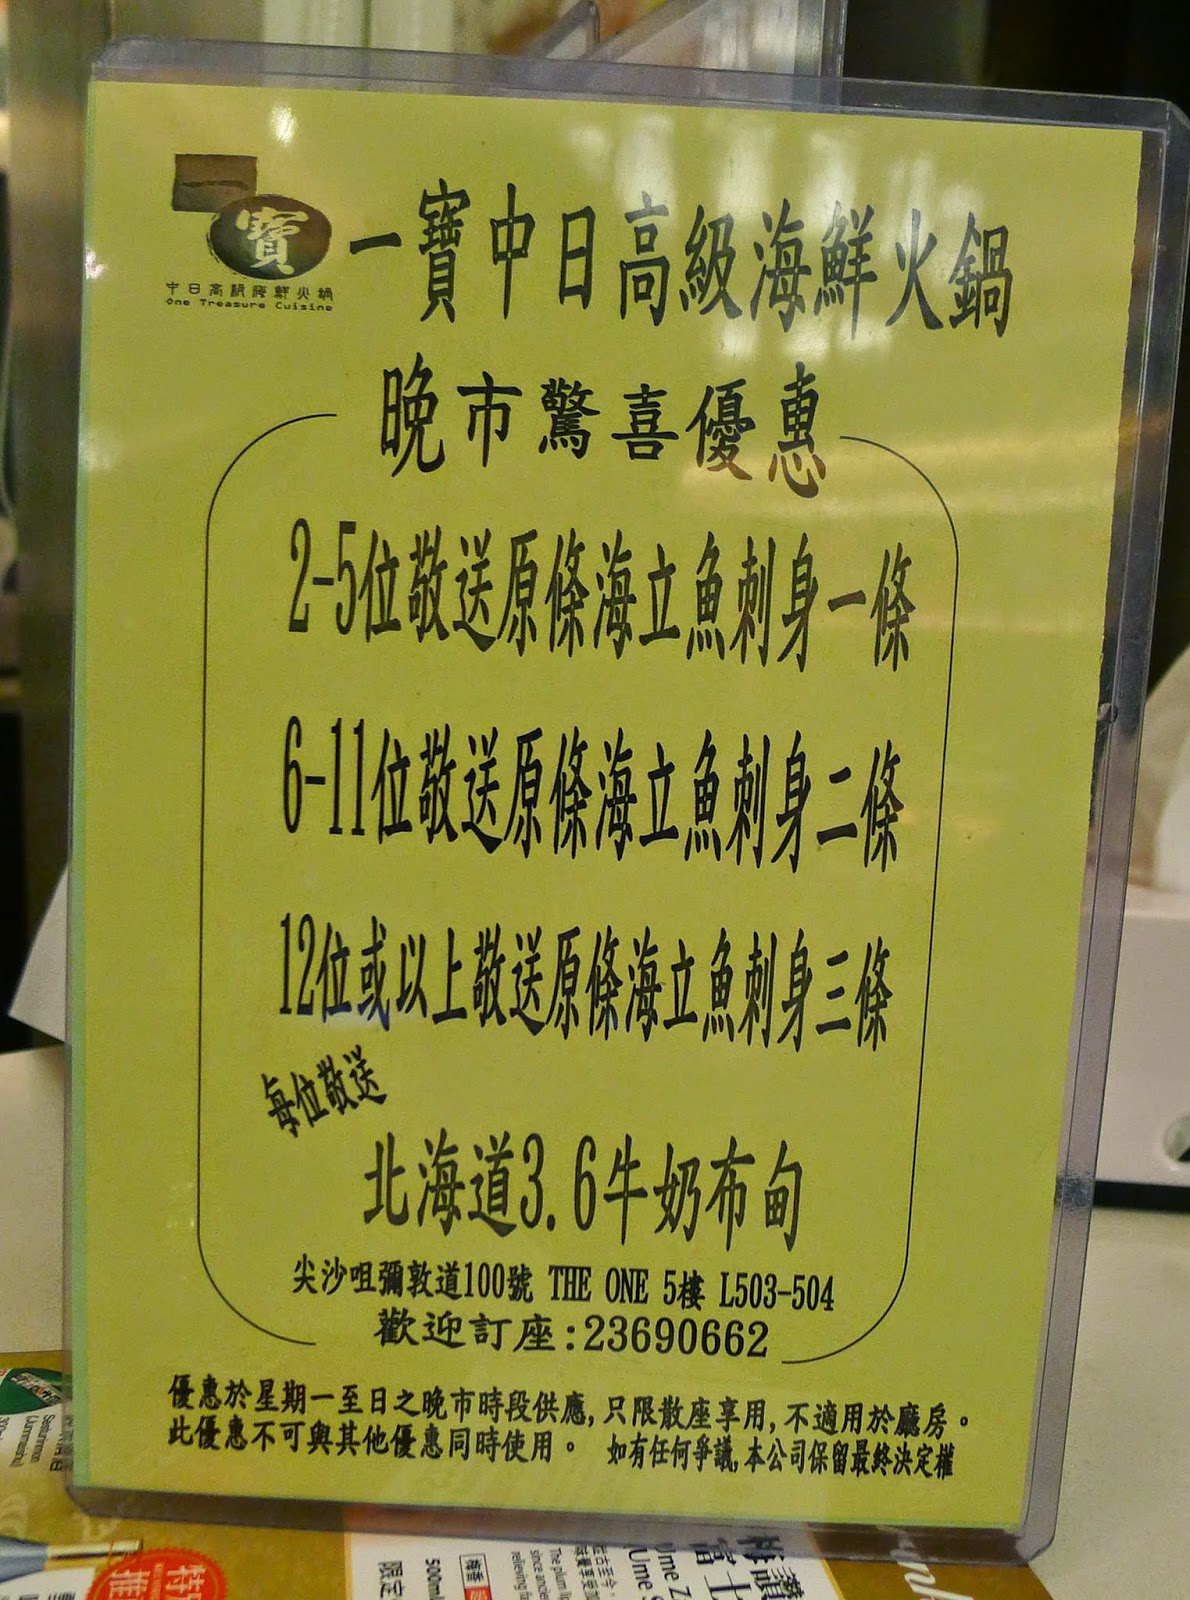 一寶
中日高級海鮮火鍋
One Treasure Cuisine
一寶中日高級海鮮火鍋
晚市驚喜優惠
2-5位敬送原條海立魚刺身一條
6-11位敬送原條海立魚刺身二條
12位或以上敬送原條海立魚刺身三條
每位敬送
北海道3.6牛奶布甸
尖沙咀彌敦道100號 THE ONE 5樓 L503-504
歡迎訂座:23690662
優惠於星期一至日之晚市時段供應,只限散座享用,不適用於廳房。
此優惠不可與其他優惠同時使用。 如有任何爭議,本公司保留最終決定權
500ml
限定